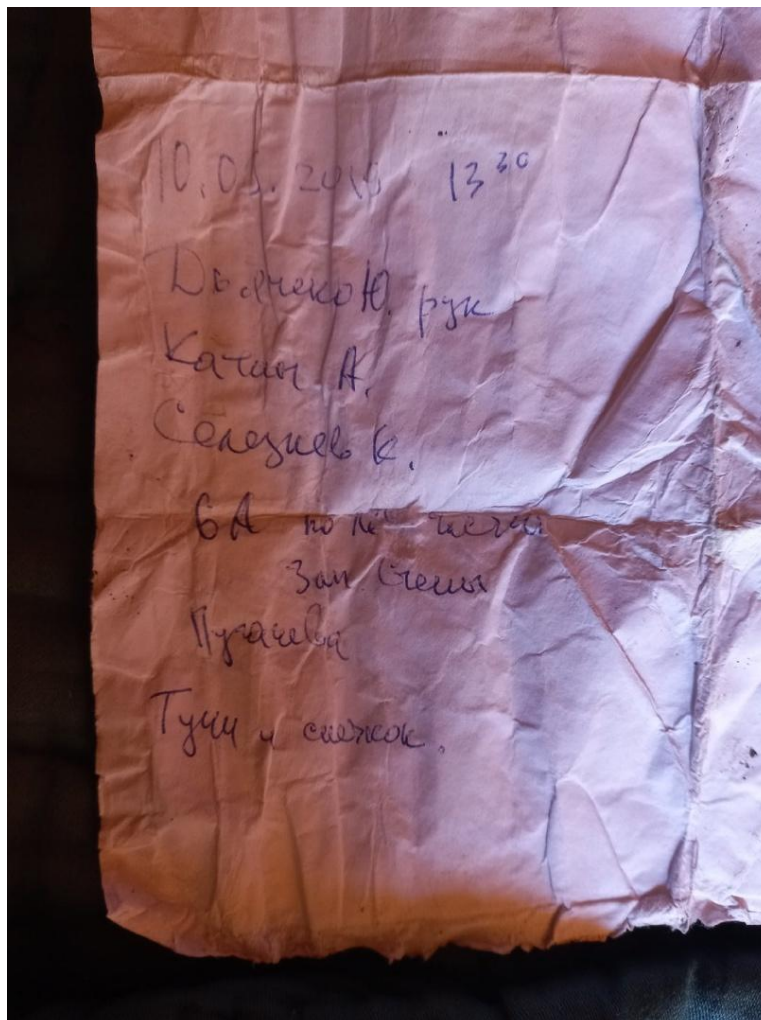 10.05.2016 13 30
Дьяченко Ю. рук
Качин А.
Селезнев К.
6А по
Зап. Стены
Пугачева
Тучи и снежок.